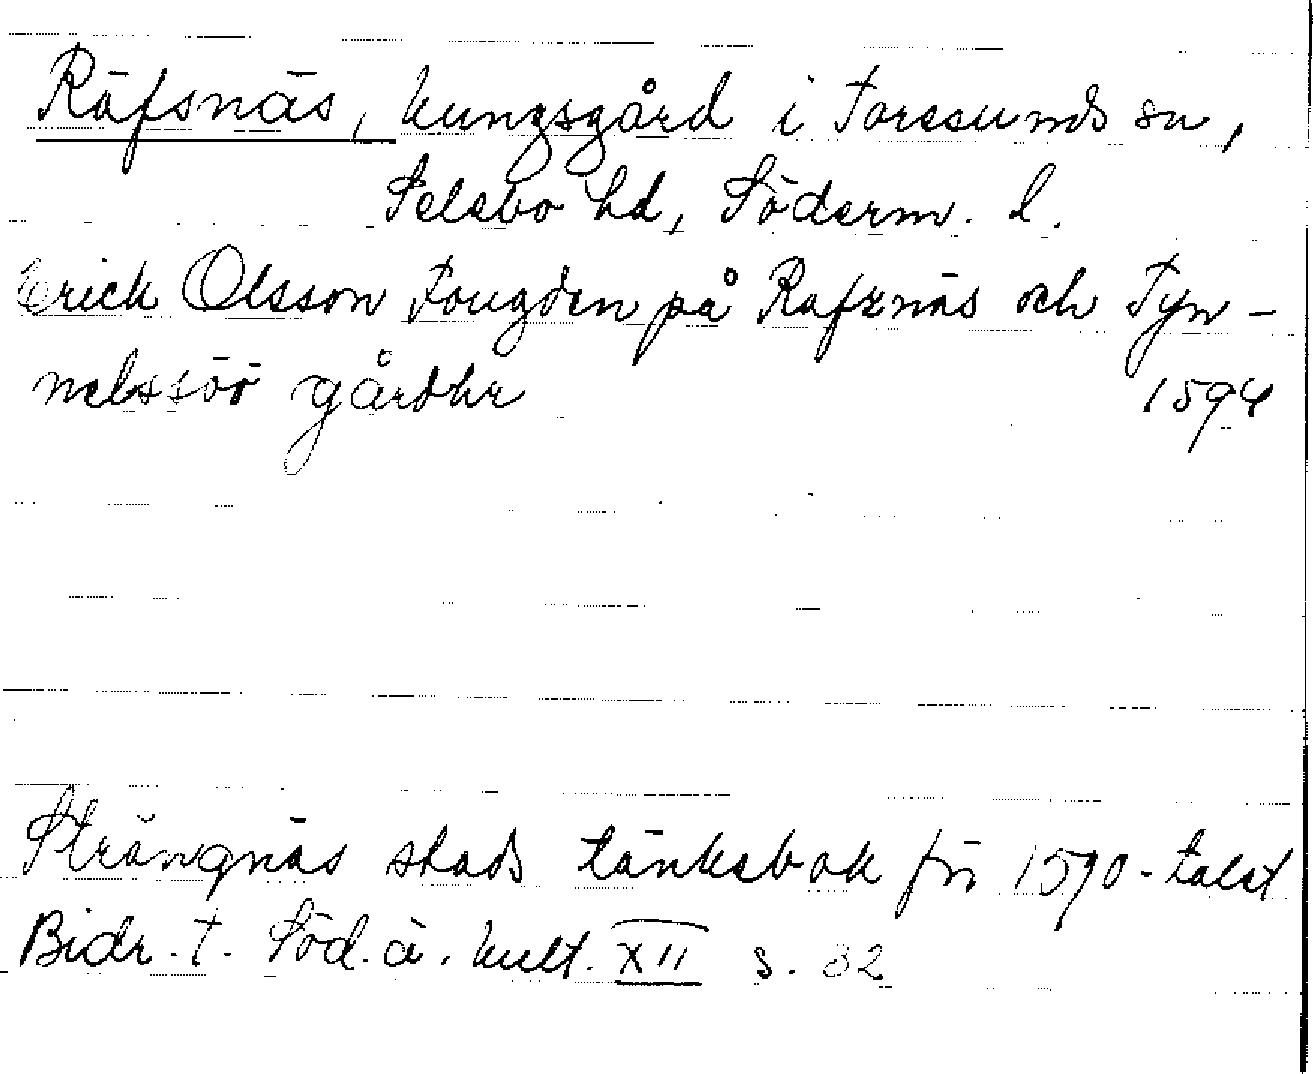 Räfsnäs, kungsgård i Toresunds sn,
Selebo hd, Söderm. l.
Erick Olsson Fougden på Rafznäs och Tyn-
nelssöö gårdhr 1594
Strängnäs stads tänkebok fr. 1590-talet
Bidr. t. Söd. ä. kult. XII s. 82